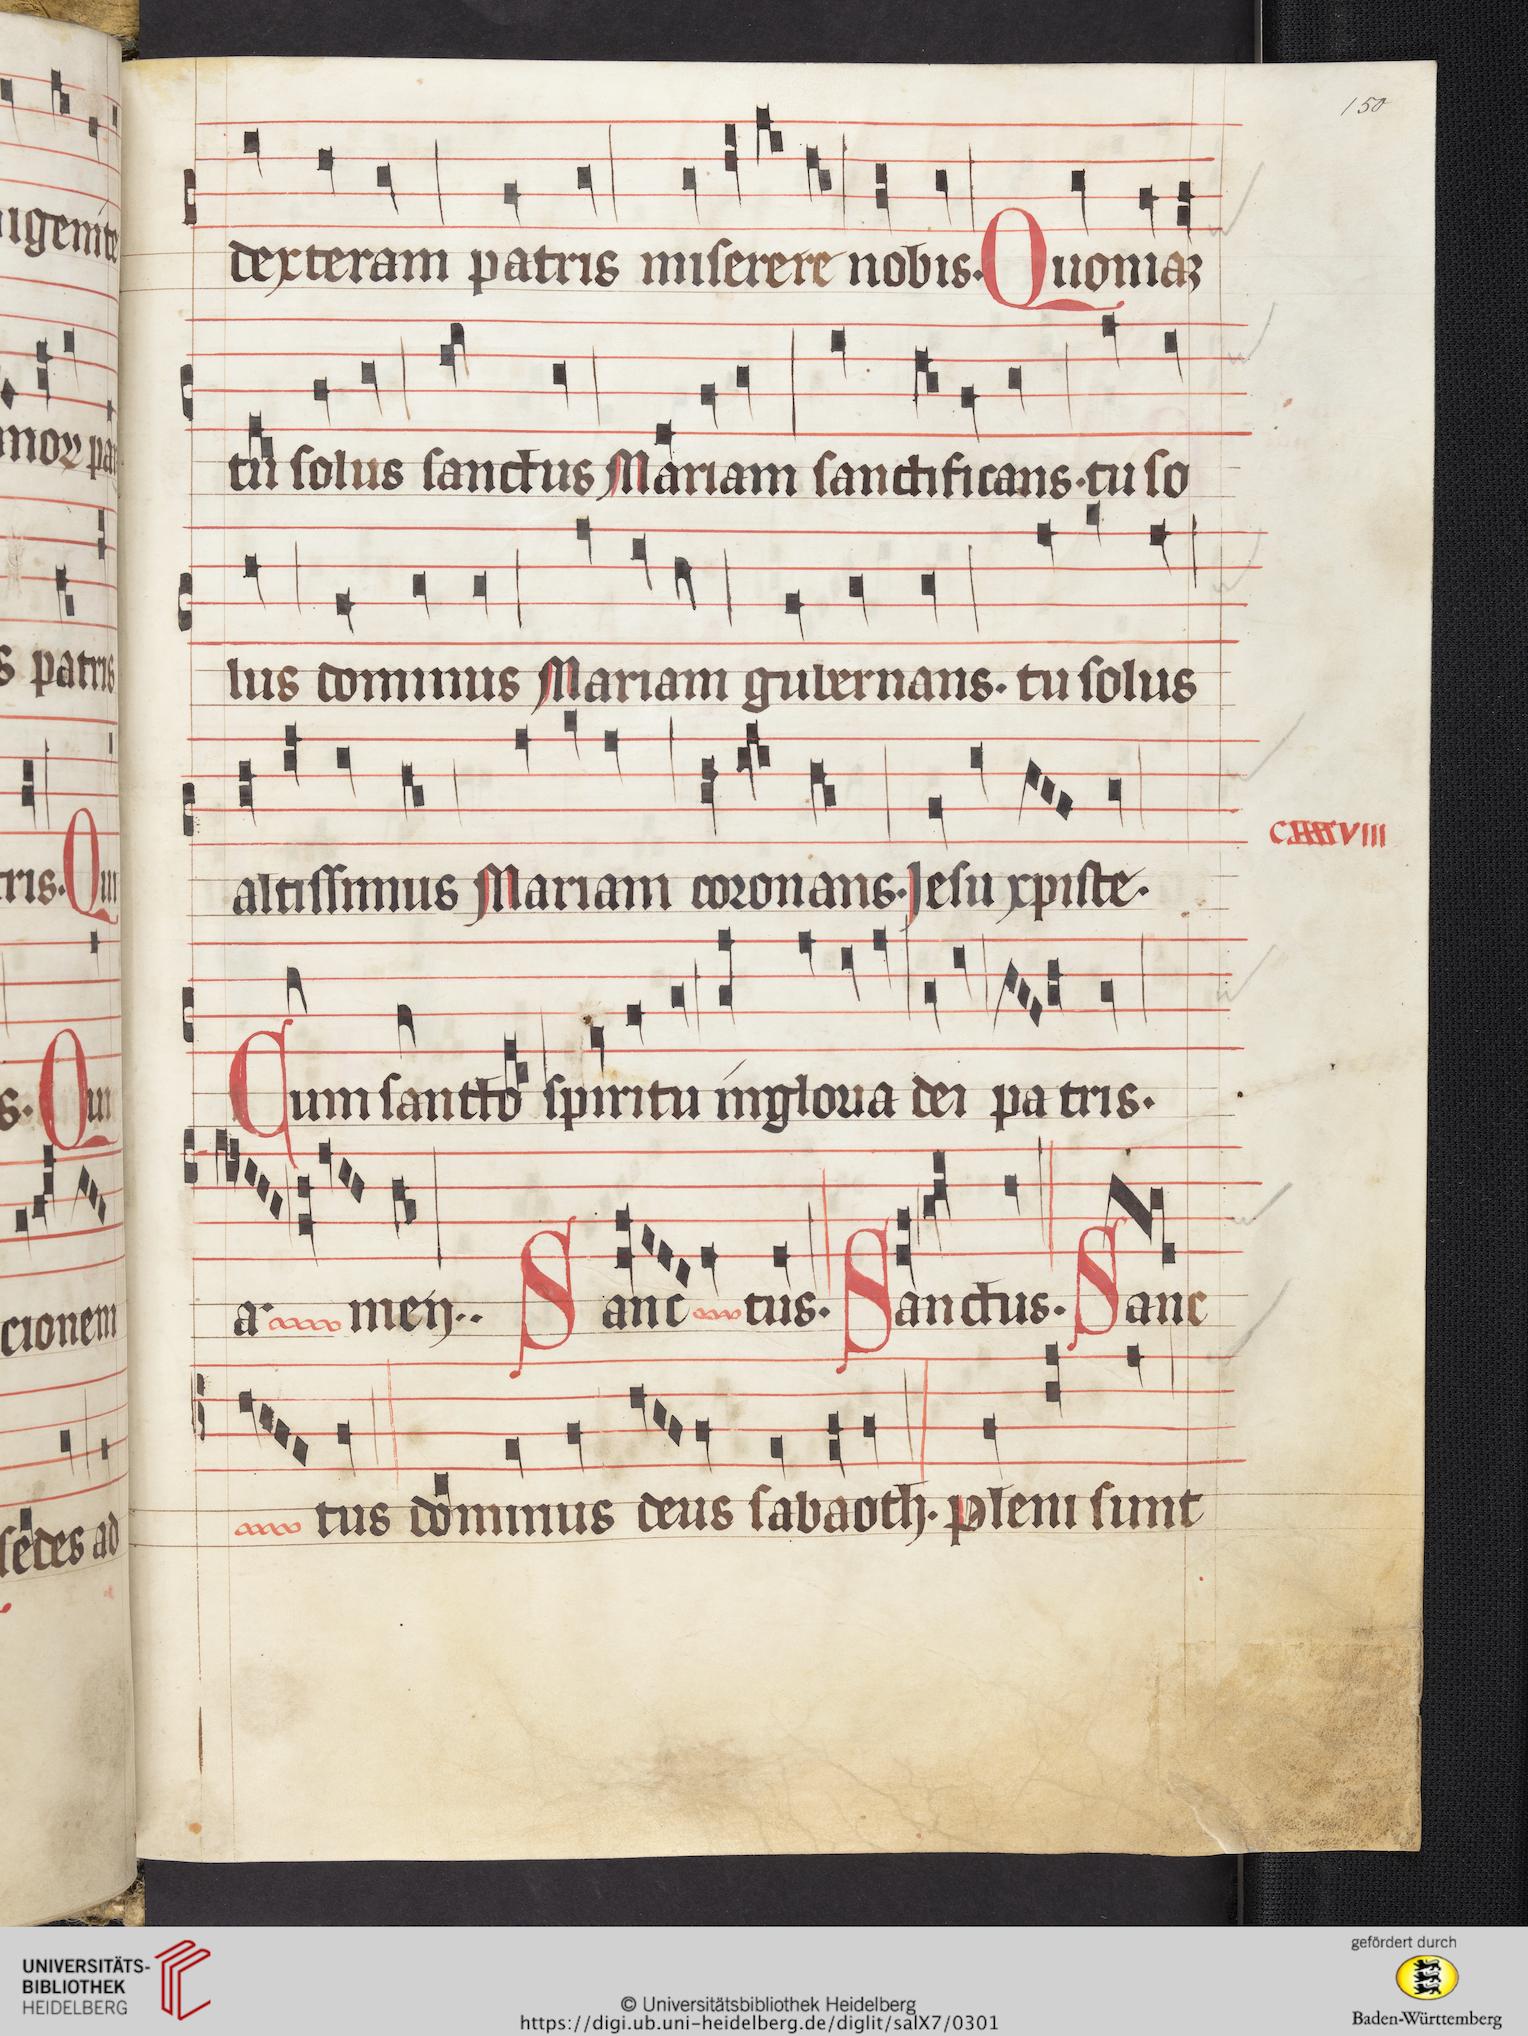 150
igenite
mox pa
s patris
tris. Qui
s. Qui
cionem
sedes ad
dexteram patris miserere nobis. Quoniaꝫ
tu solus sanctus Mariam sanctificans. tu so
lus dominus Mariam gubernans. tu solus
altissimus Mariam coronans. Jesu xpiste.
CXXXXVIII
Cum sancto spiritu in gloria dei patris.
a men.. Sanc tus. Sanctus. Sanc
tus dominus deus sabaoth. pleni sunt
UNIVERSITÄTS-
BIBLIOTHEK
HEIDELBERG
© Universitätsbibliothek Heidelberg
https://digi.ub.uni-heidelberg.de/diglit/salX7/0301
gefördert durch
Baden-Württemberg